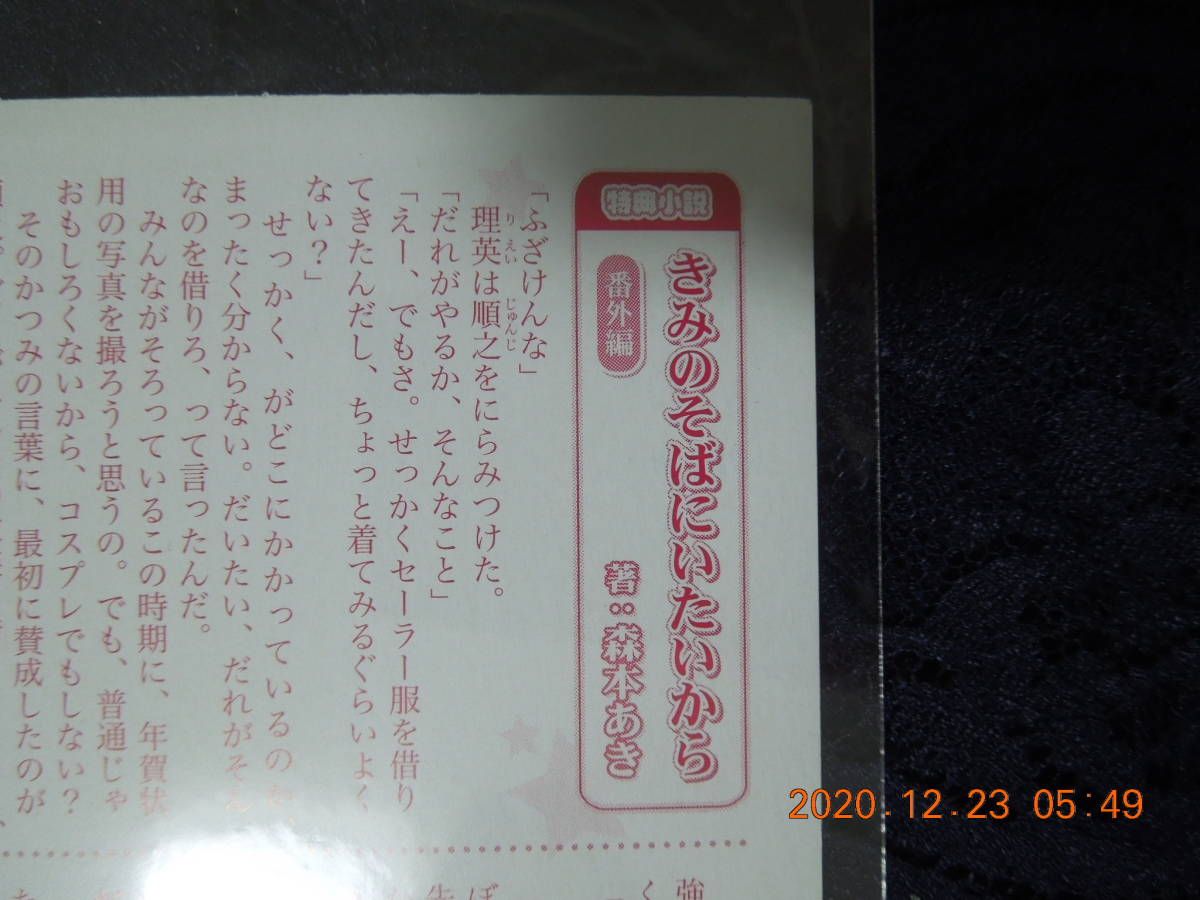 特典小説
きみのそばにいたいから
番外編
著：森本あき
「ふざけんな」
理英は順之をにらみつけた。
りえい じゅんじ
「だれがやるか、そんなこと」
「えー、でもさ。せっかくセーラー服を借り
てきたんだし、ちょっと着てみるぐらいよく
ない？」
せっかく、がどこにかかっているのか、
まったく分からない。だいたい、だれがそん
なのを借りろ、って言ったんだ。
みんながそろっているこの時期に、年賀状
用の写真を撮ろうと思うの。でも、普通じゃ
おもしろくないから、コスプレでもしない？
そのかつみの言葉に、最初に賛成したのが
強
く
ぼ
2020.12.23 05:49